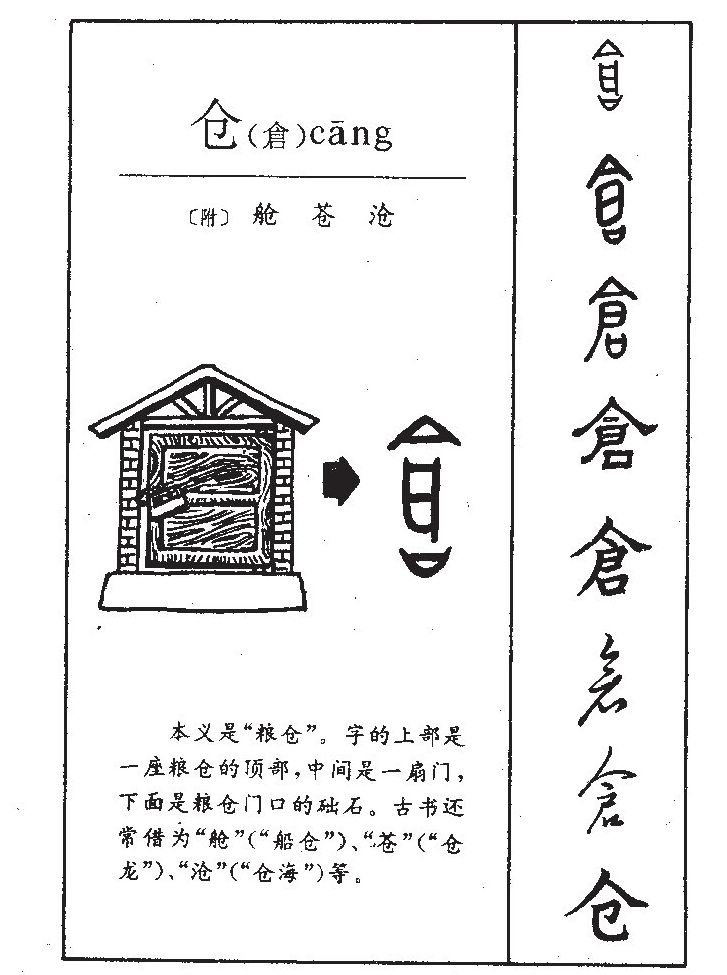 仓(倉)cāng
〔附〕 舱 苍 沧
本义是“粮仓”。字的上部是
一座粮仓的顶部，中间是一扇门，
下面是粮仓门口的础石。古书还
常借为“舱”(“船仓”)、“苍”(“仓
龙”)、“沧”(“仓海”)等。
倉
倉
倉
倉
倉
倉
倉
仓